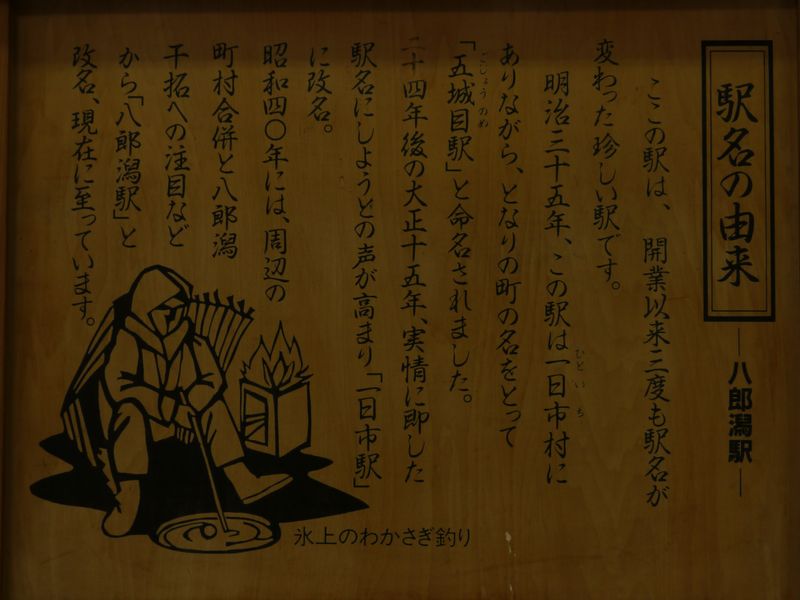 駅名の由来
―八郎潟駅―
ここの駅は、開業以来三度も駅名が
変わった珍しい駅です。
明治三十五年、この駅は一日市村に
ひといち
ありながら、となりの町の名をとって
「五城目駅」と命名されました。
ごじょうのめ
二十四年後の大正十五年、実情に即した
駅名にしようとの声が高まり「一日市駅」
に改名。
昭和四〇年には、周辺の
町村合併と八郎潟
干拓への注目など
から「八郎潟駅」と
改名、現在に至っています。
氷上のわかさぎ釣り